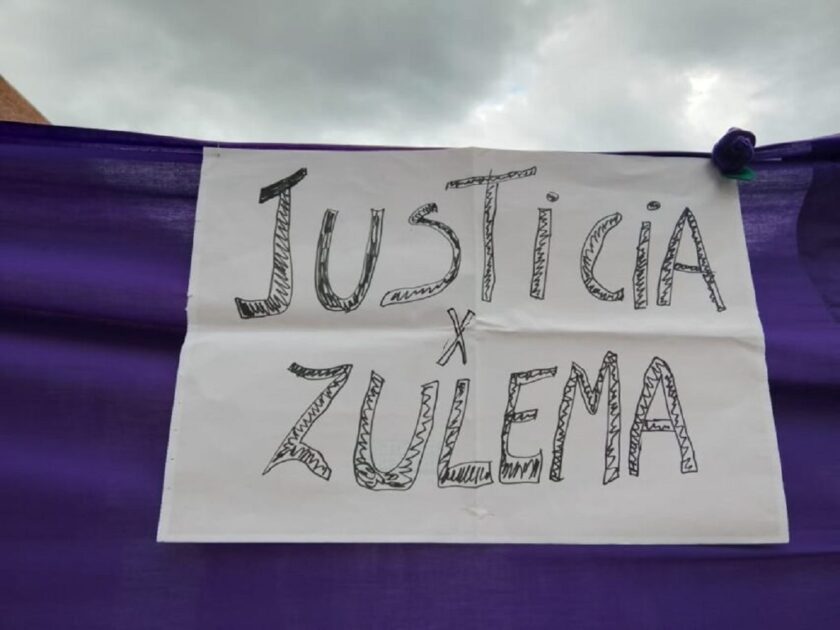 JUSTiCiA
X
ZULEMA